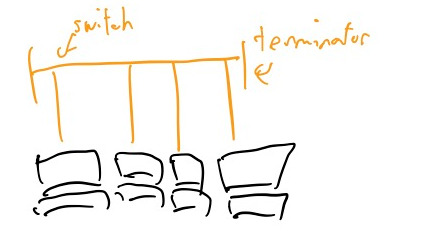 switch
terminator